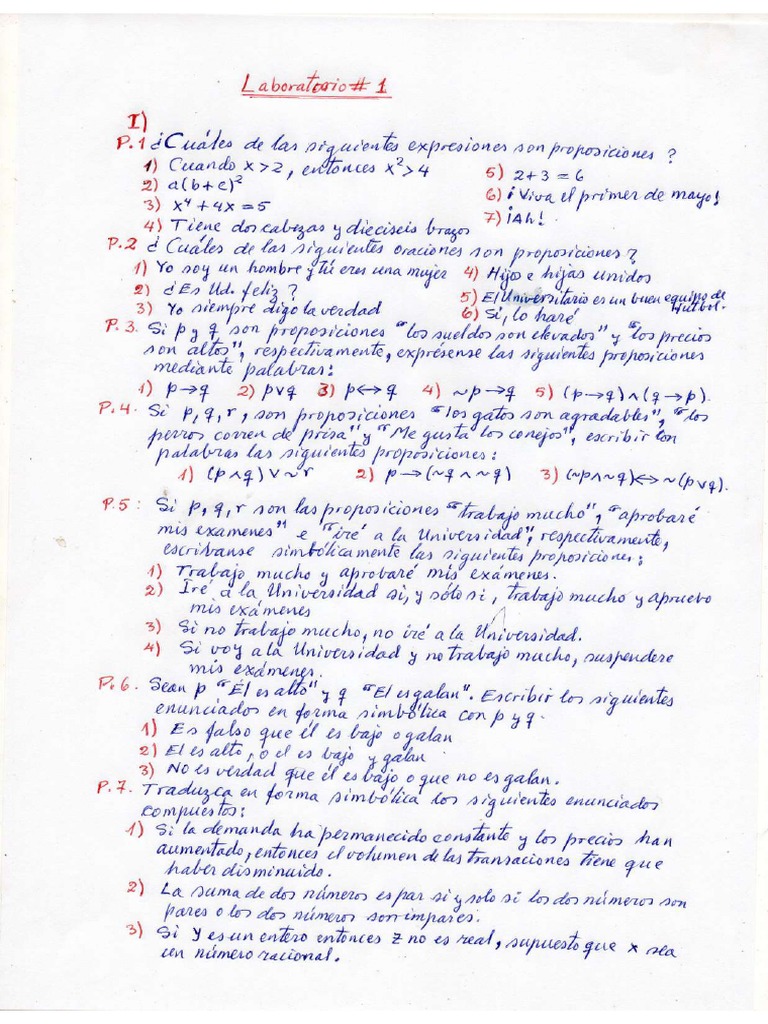 Laboratorio # 1
I)
P.1 ¿Cuáles de las siguientes expresiones son proposiciones?
1) Cuando x>2, entonces x²>4 5) 2+3=6
2) a(b+c)² 6) ¡Viva el primer de mayo!
3) x⁴+4x=5 7) ¡Ah!
4) Tiene dos cabezas y dieciseis brazos
P.2 ¿Cuáles de las siguientes oraciones son proposiciones?
1) Yo soy un hombre y tú eres una mujer 4) Hijos e hijas unidos
2) ¿Es Ud. feliz? 5) El Universitario es un buen equipo de futbol.
3) Yo siempre digo la verdad 6) Sí, lo haré
P.3. Si p y q son proposiciones "los sueldos son elevados" y "los precios
son altos", respectivamente, exprésense las siguientes proposiciones
mediante palabras:
1) p→q 2) p∨q 3) p↔q 4) ~p→q 5) (p→q)∧(q→p).
P.4. Si p, q, r, son proposiciones "los gatos son agradables", "los
perros corren de prisa" y "Me gusta los conejos", escribir con
palabras las siguientes proposiciones:
1) (p∧q)∨~r 2) p→(~q∧~q) 3) (~p∧~q)↔~(p∨q).
P.5: Si p, q, r son las proposiciones "trabajo mucho", "aprobaré
mis examenes" e "iré a la Universidad", respectivamente,
escríbanse simbólicamente las siguientes proposiciones:
1) Trabajo mucho y aprobaré mis exámenes.
2) Iré a la Universidad si, y sólo si, trabajo mucho y apruebo
mis exámenes
3) Si no trabajo mucho, no iré a la Universidad.
4) Si voy a la Universidad y no trabajo mucho, suspendere
mis exámenes.
P.6. Sean p "Él es alto" y q "El es galan". Escribir los siguientes
enunciados en forma simbólica con p y q.
1) Es falso que él es bajo o galan
2) El es alto, o el es bajo y galan
3) No es verdad que él es bajo o que no es galan.
P.7. Traduzca en forma simbólica los siguientes enunciados
compuestos:
1) Si la demanda ha permanecido constante y los precios han
aumentado, entonces el volumen de las transaciones tiene que
haber disminuido.
2) La suma de dos números es par si y solo si los dos números son
pares o los dos números son impares.
3) Si Y es un entero entonces Z no es real, supuesto que x sea
un número racional.